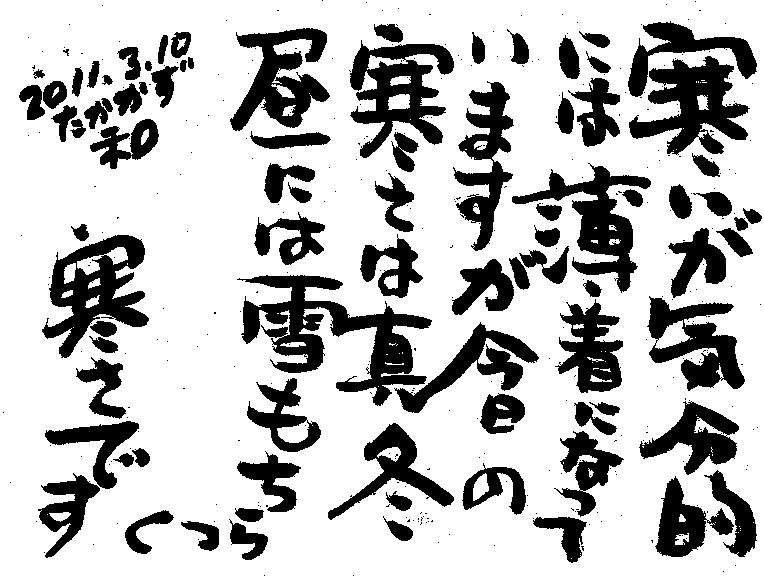 寒いが気分的
には薄着になって
いますが今日の
寒さは真冬
昼には雪もちら
つく
寒さです
2011.3.10
たかかず
和